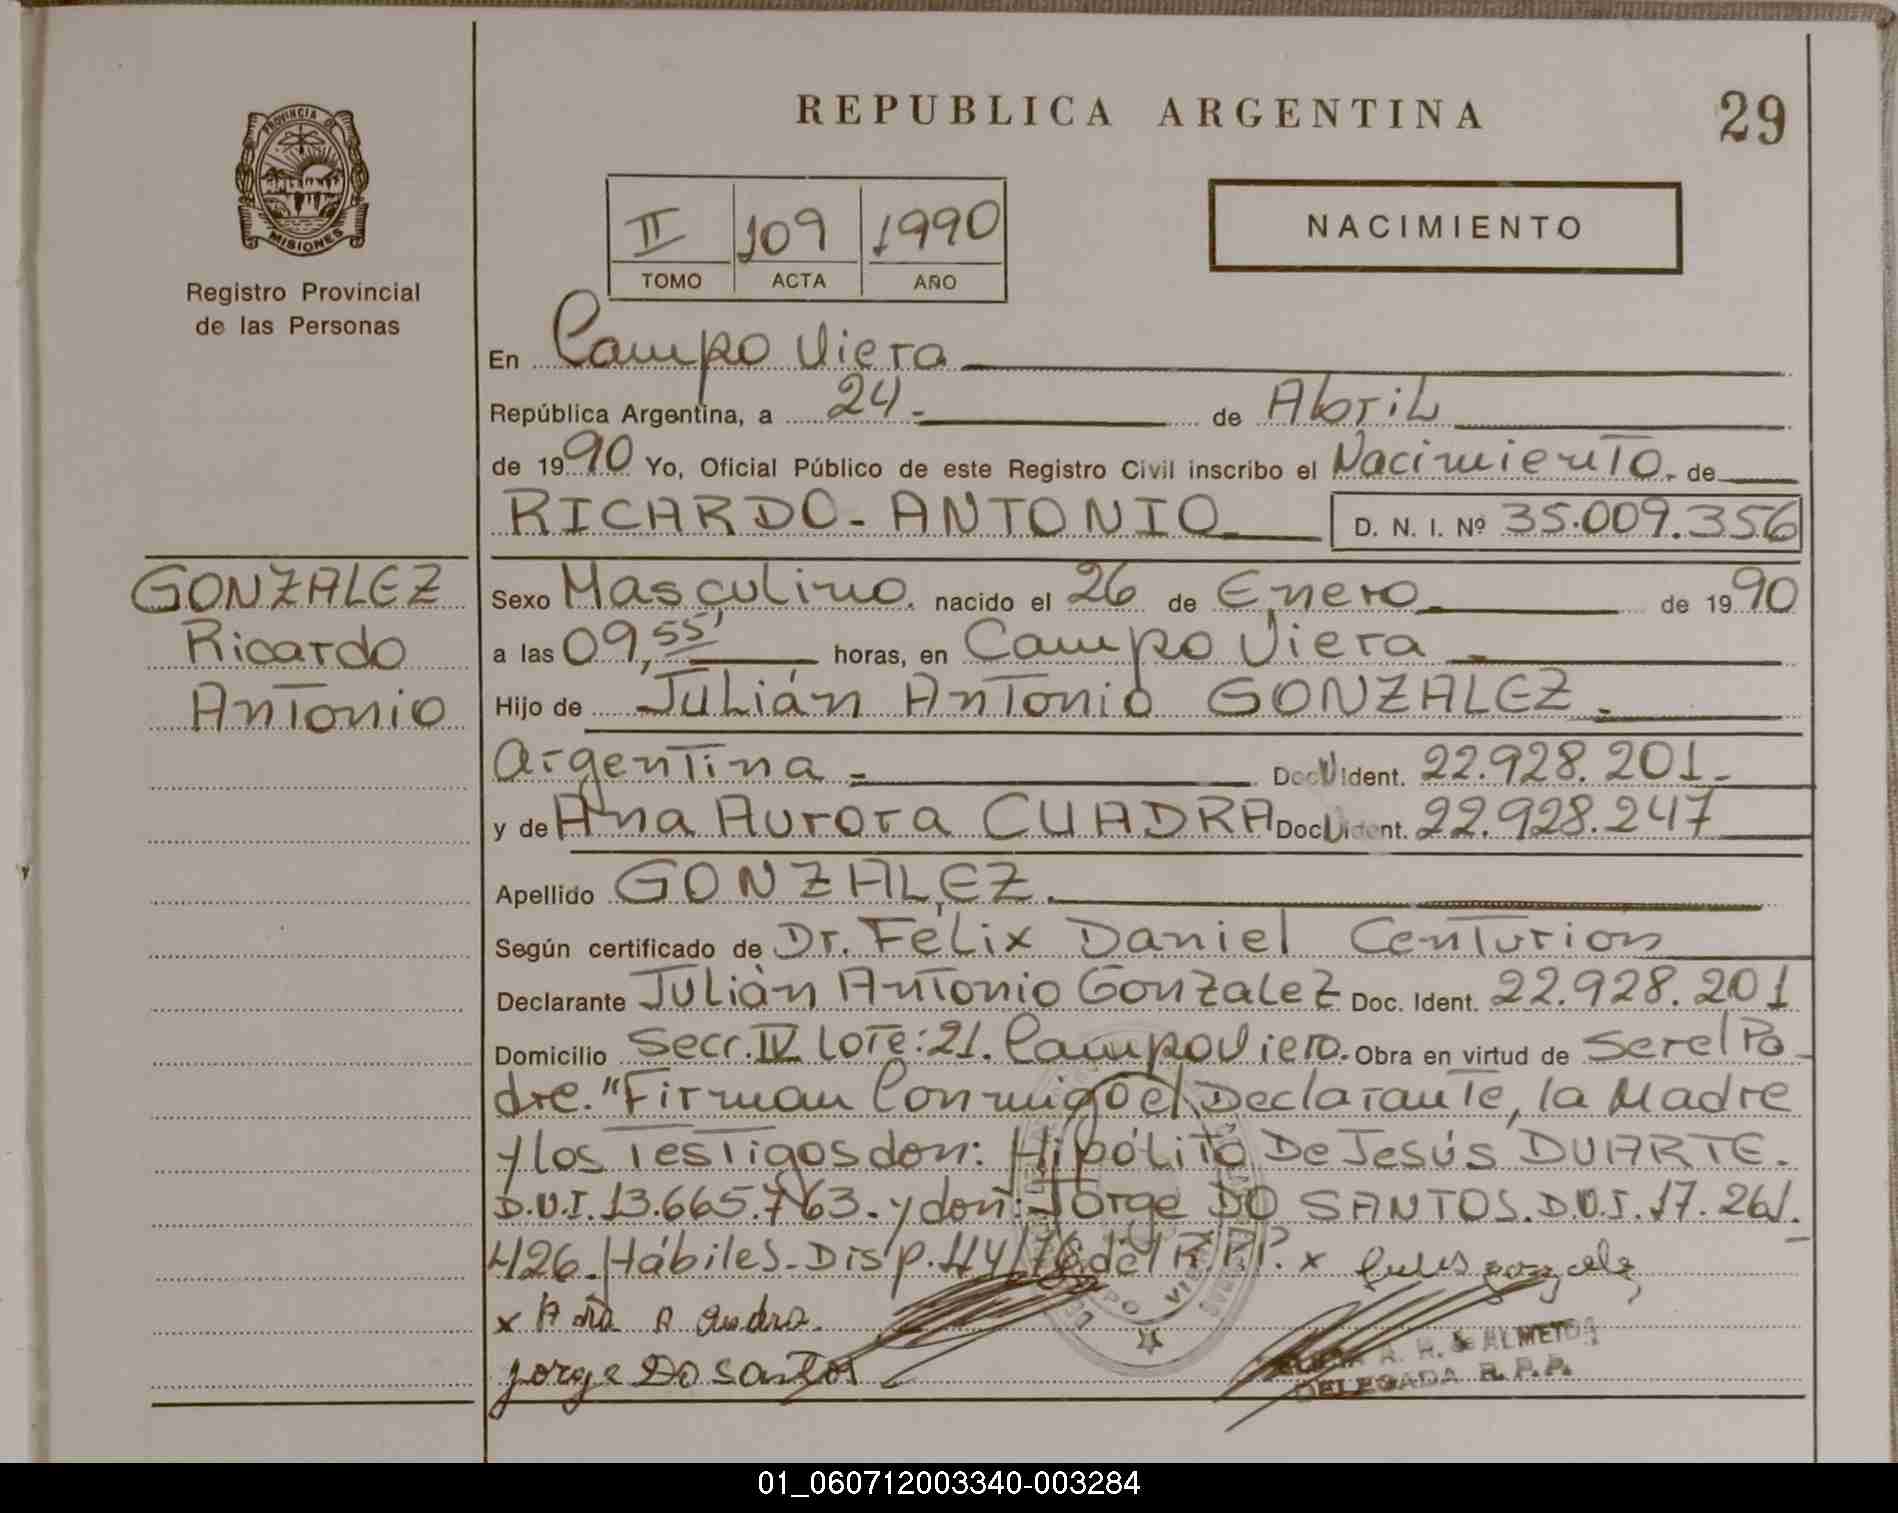 REPUBLICA ARGENTINA
29
PROVINCIA DE
MISIONES
Registro Provincial
de las Personas
II 109 1990
TOMO ACTA AÑO
NACIMIENTO
En Campo Viera
República Argentina, a 24.- de Abril
de 1990 Yo, Oficial Público de este Registro Civil inscribo el Nacimiento. de
RICARDO - ANTONIO D. N. I. Nº 35.009.356
GONZALEZ
Ricardo
Antonio
Sexo Masculino. nacido el 26 de Enero de 1990
a las 09,55' horas, en Campo Viera
Hijo de Julián Antonio GONZALEZ.
Argentina Doc. Ident. 22.928.201.-
y de Ana Aurora CUADRA Doc. Ident. 22.928.247
Apellido GONZALEZ.
Según certificado de Dr. Félix Daniel Centurion
Declarante Julián Antonio Gonzalez Doc. Ident. 22.928.201
Domicilio Secc. IV Lote: 21. Campo Viera. Obra en virtud de Ser el Pa-
dre. "Firman Conmigo el Declarante, la Madre
y los Testigos don: Hipólito De Jesús DUARTE.
D.U.I. 13.665.763. y don: Jorge DO SANTOS. D.U.I. 17.261.
426. Hábiles. Disp. 44/78 del R.P.P. x
x Ana A Cuadra.
Jorge Do santos
A. H. ALMEIDA
DELEGADA R.P.P.
01_060712003340-003284